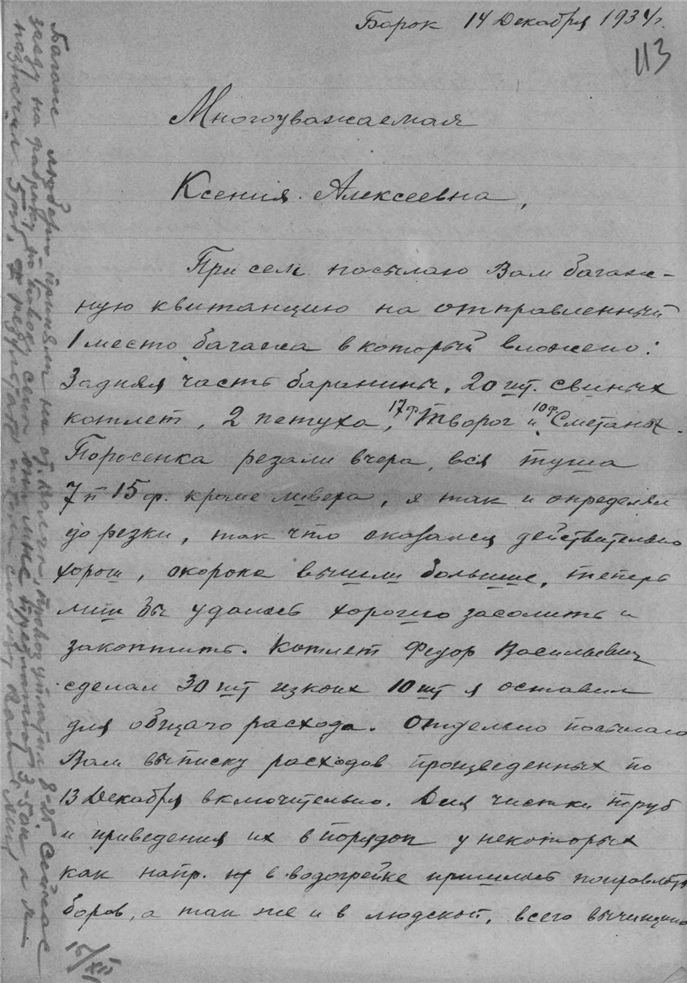 Борок 14 Декабря 1934 г.
113
Многоуважаемая
Ксения Алексеевна,
При сем посылаю Вам багаж-
ную квитанцию на отправленный
1 место багажа в который вложено:
Задняя часть баранины, 20 шт. свиных
котлет, 2 петуха, 17ф. творог и 10ф. Сметаны.
Поросенка резали вчера, вся туша
7 п 15 ф. кроме ливера, я так и определял
до резки, так что оказался действительно
хорош, окорока вышли большие, теперь
лиш бы удалось хорошо засолить и
закоптить. Котлет Федор Васильевич
сделал 30 шт из коих 10 шт я оставил
для общаго расхода. Отдельно посылаю
Вам выписку расходов произведенных по
13 Декабря включительно. Для чистки труб
и приведения их в порядок у некоторых
как напр. в водогрейке пришлось поправлять
боров, а так же и в людской, всего вычищено
Багаж
заеду на фабрику
15/XII